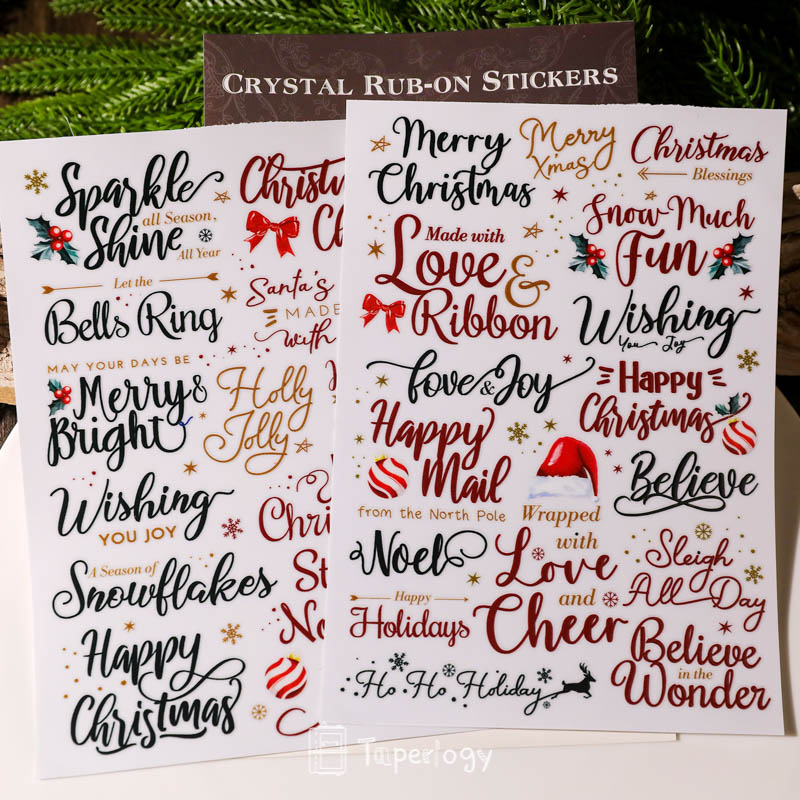 CRYSTAL RUB-ON STICKERS
Sparkle
all Season,
Shine
All Year
Let the
Bells Ring
MAY YOUR DAYS BE
Merry &
Bright
Holly
Jolly
Santa's
MADE
with
Wishing
YOU JOY
A Season of
Snowflakes
Happy
Christmas
Merry
Christmas
Merry
Xmas
Christmas
Blessings
Made with
Love &
Ribbon
Snow Much
Fun
Wishing
You Joy
Love & Joy
Happy
Christmas
Happy
Mail
from the North Pole
Believe
Wrapped
with
Love
and
Cheer
Noel
Sleigh
All Day
Happy
Holidays
Believe
in the
Wonder
Ho Ho Holiday
Taperlogy